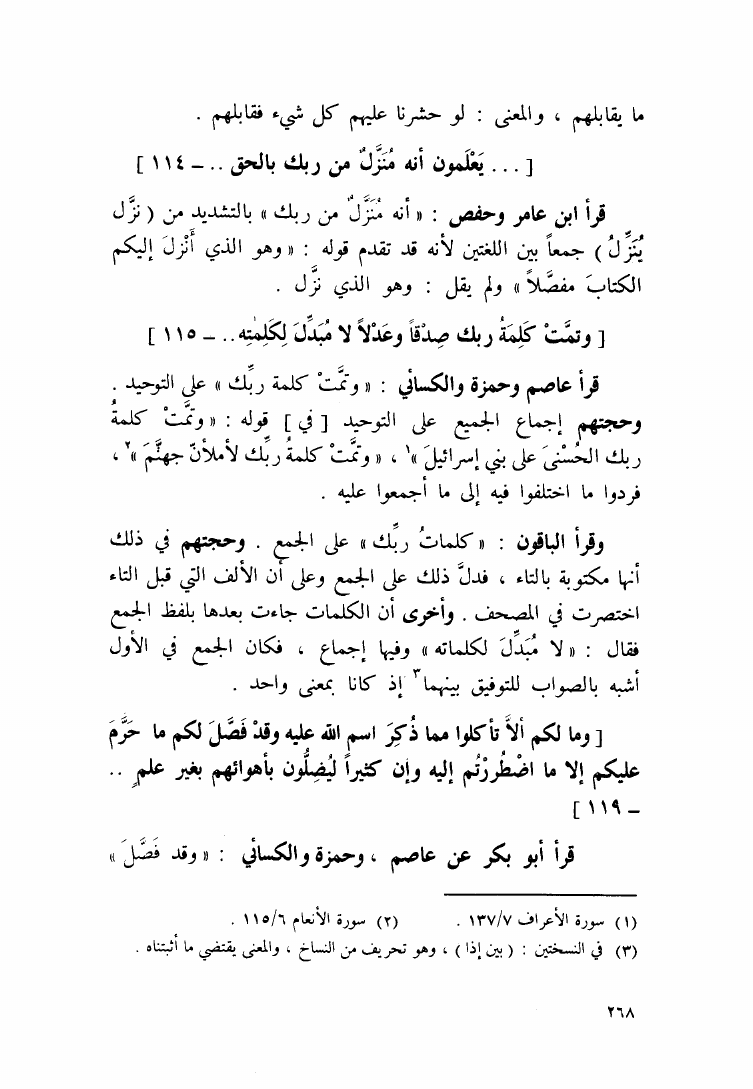 ما يقابلهم ، والمعنى : لو حشرنا عليهم كل شيء فقابلهم .
[ ... يَعْلَمون أنه مُنَزَّلٌ من ربك بالحق .. – ١١٤ ]
قرأ ابن عامر وحفص : « أنه مُنَزَّلٌ من ربك » بالتشديد من ( نزَّل
يُنَزِّلُ ) جمعاً بين اللغتين لأنه قد تقدم قوله : « وهو الذي أَنْزلَ إليكم
الكتابَ مفصَّلاً » ولم يقل : وهو الذي نزَّل .
[ وتمَّتْ كَلِمَةُ ربك صِدْقاً وعَدْلاً لا مُبَدِّلَ لِكَلِمٰتِه .. – ١١٥ ]
قرأ عاصم وحمزة والكسائي : « وتمَّتْ كلمة ربِّك » على التوحيد .
وحجتهم إجماع الجميع على التوحيد [ في ] قوله : « وتمَّتْ كلمةُ
ربك الحُسْنىَ على بني إسرائيلَ »١ ، « وتمَّتْ كلمةُ ربِّك لأملأنّ جهنَّمَ »٢ ،
فردوا ما اختلفوا فيه إلى ما أجمعوا عليه .
وقرأ الباقون : « كلماتُ ربِّك » على الجمع . وحجتهم في ذلك
أنها مكتوبة بالتاء ، فدلَّ ذلك على الجمع وعلى أن الألف التي قبل التاء
اختصرت في المصحف . وأخرى أن الكلمات جاءت بعدها بلفظ الجمع
فقال : « لا مُبَدِّلَ لكلماته » وفيها إجماع ، فكان الجمع في الأول
أشبه بالصواب للتوفيق بينهما٣ إذ كانا بمعنى واحد .
[ وما لكم ألاَّ تأكلوا مما ذُكِرَ اسم الله عليه وقدْ فَصَّلَ لكم ما حَرَّمَ
عليكم إلا ما اضْطُرِرْتُم إليه وإن كثيراً ليُضِلُّون بأهوائهم بغير علمٍ ..
– ١١٩ ]
قرأ أبو بكر عن عاصم ، وحمزة والكسائي : « وقد فَصَّلَ »
(١) سورة الأعراف ١٣٧/٧ . (٢) سورة الأنعام ١١٥/٦ .
(٣) في النسختين : ( بين إذا ) ، وهو تحريف من النساخ ، والمعنى يقتضي ما أثبتناه .
٢٦٨